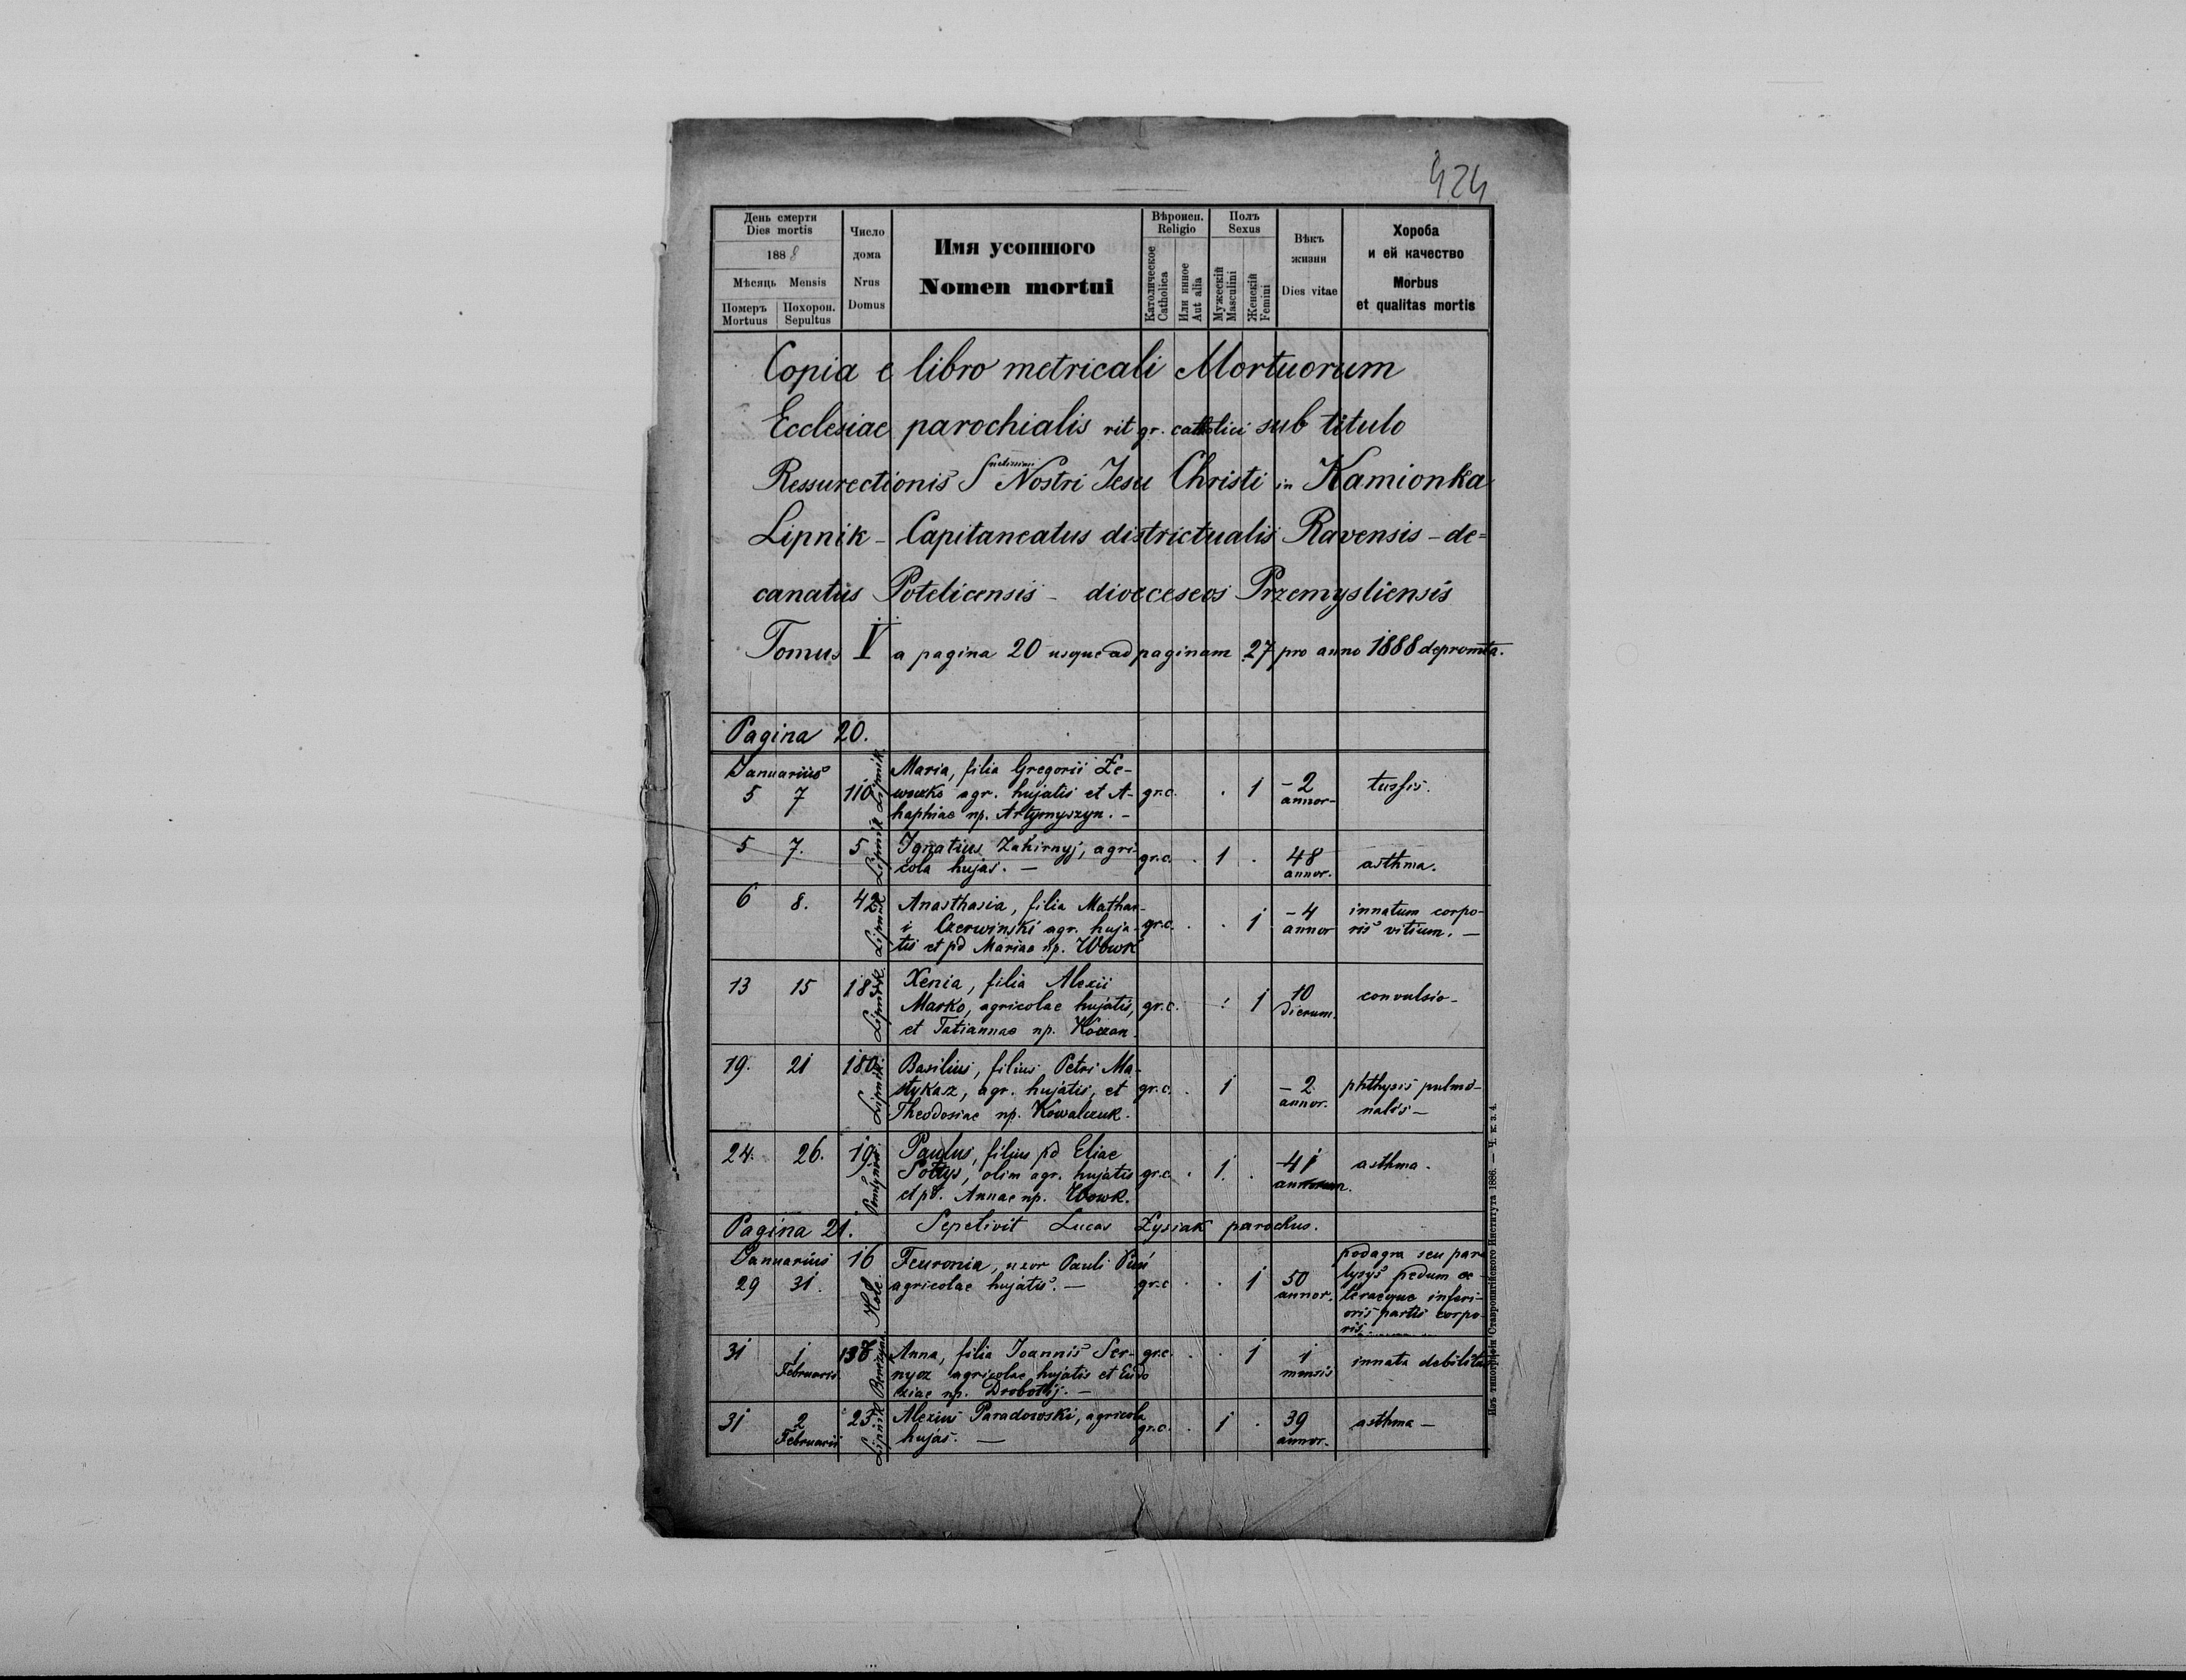 424
День смерти
Dies mortis
1888
Мѣсяць Mensis
Померъ Похорон.
Mortuus Sepultus
Число
дома
Nrus
Domus
Имя усопшого
Nomen mortui
Вѣроисп.
Religio
Католическое
Catholica
Или инное
Aut alia
Полъ
Sexus
Мужескій
Masculini
Женскій
Femini
Вѣкъ
жизни
Dies vitae
Хороба
и ей качество
Morbus
et qualitas mortis
Copia e libro metricali Mortuorum
Ecclesiae parochialis rit gr. catholici sub titulo
Ressurectionis Nostri Jesu Christi in Kamionka
Lipnik - Capitaneatus districtualis Ravensis - de=
canatus Potelicensis - dioeceseos Przemysliensis
Tomus V a pagina 20 usque ad paginam 27 pro anno 1888 depromta.
Pagina 20.
Januarius
5 7 110 Lipnik.
Maria, filia Gregorii Le-
wczko agr. hujatis et A-
haphiae np. Artymyszyn. -
gr.c. . 1
- 2
annor-
tussis.
5 7. 5 Lipnik
Ignatius Zakirnyj, agri-
cola hujas. -
gr.c. . 1 .
48
annor.
asthma.
6 8. 42 Lipnik
Anasthasia, filia Mathae-
i Czerwinski agr. huja-
tis et pd Mariae np. Wowk
gr.c. . . 1
- 4
annor
innatum corpo-
ris vitium. -
13 15 183 Lipnik.
Xenia, filia Alexii
Masko, agricolae hujatis,
et Tatiannae np. Koczan.
gr.c. : 1
10
dierum.
convulsio-
19. 21 180 Lipnik.
Basilius, filius Petri Ma-
stykasz, agr. hujatis, et
Theodosiae np. Kowalczuk.
gr.c. . 1
- 2
annor.
phthysis pulmo-
nalis -
24. 26. 19
Paulus, filius pd Eliae
Sołtys, olim agr. hujatis
et pd. Annae np. Wowk.
gr.c. . 1. .
41
asthma.
Pagina 21. Sepelivit Lucas Zysiak parochus.
Januarius
29 31. 16 Hole.
Feuronia, uxor Pauli
agricolae hujatis. -
gr.c . . 1
50
annor.
podagra seu para
lysys pedum ce
teraeque inferi-
oris partis corpo-
ris
31 1
Februarii
138
Anna, filia Joannis Ser-
nycz agricolae hujatis et Eudo
xiae np. Drobotij. -
gr.c. . . 1
1
mensis
innata debilitas
31 2
Februarii
25 Lipnik
Alexius Paradowski, agricola
hujas. -
gr.c. . 1 .
39
annor.
asthma -
Изъ типографіи Ставропигійского Института 1886. — Ч. к. з. 4.